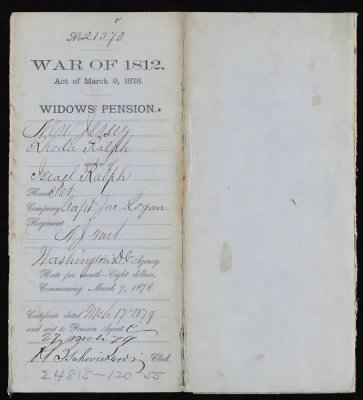 No 21370.
WAR OF 1812.
Act of March 9, 1878.
WIDOWS' PENSION.
New Jersey
Rhoda Ralph
widow of
Israel Ralph
Rank
Company Capt Logan
Regiment
N.J. Mil
Washington D.C. Agency.
Rate per month—Eight dollars,
Commencing March 9, 1878.
Certificate dated Mch 17 1879
and sent to Pension Agent
Clerk.
24815-120 55